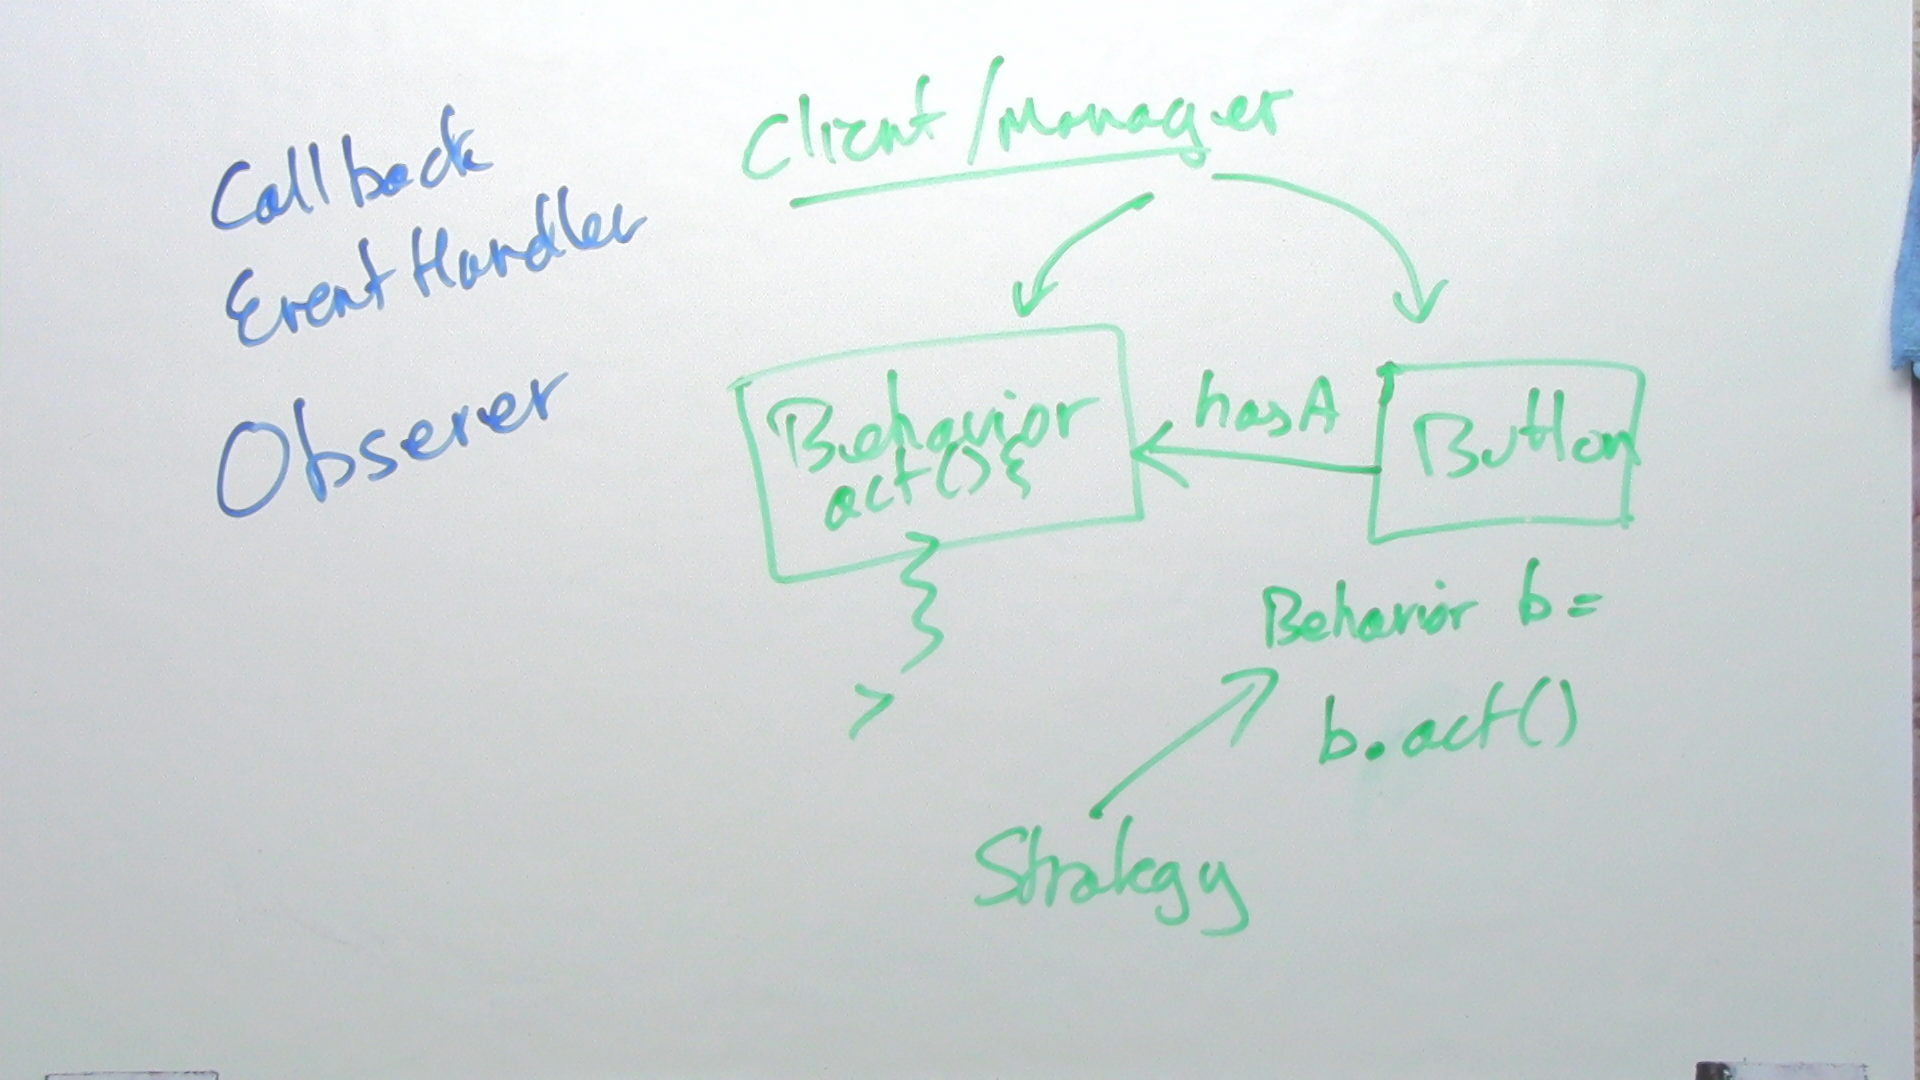 Callback
EventHandler
Observer
Client/Manager
Behavior
act() {
}
hasA
Button
Behavior b =
b.act()
Strategy